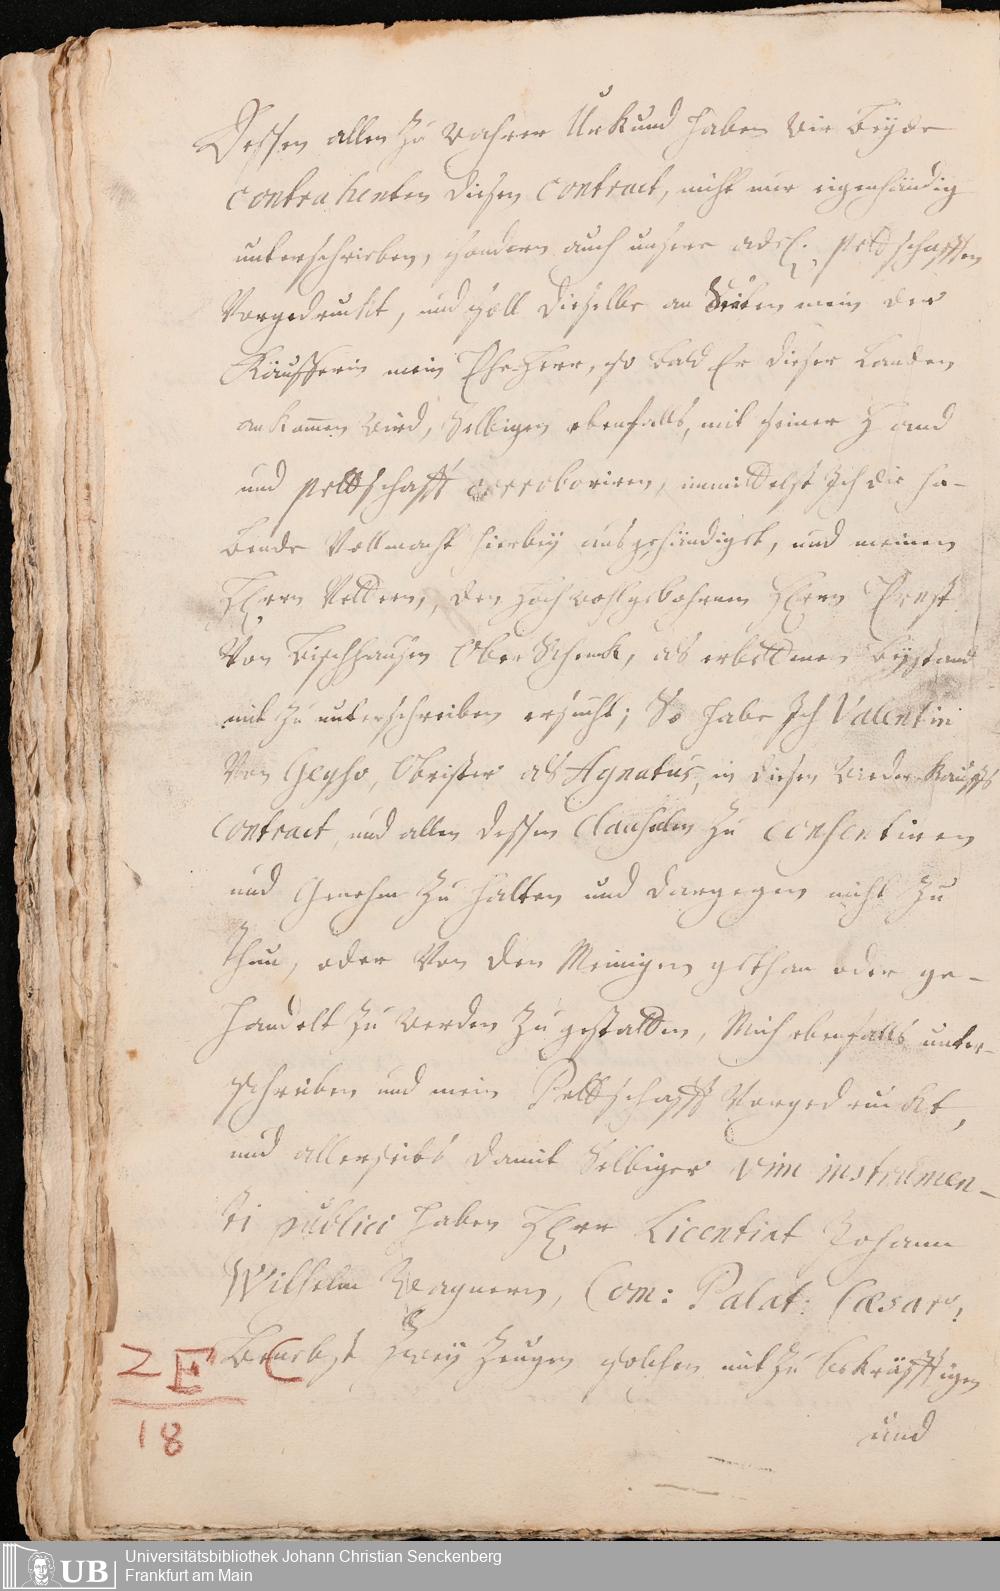 Dessen allen zu wahrer Uhrkund haben wir beyde
Contrahenten diesen Contract, nicht nur eigenhändig
unterschrieben, sondern auch unsere adel. pettschafften
Vorgedruckt, und soll dieselbe an Seiten mein der
Käufferin mein Ehe-Herr, so bald Er dieser Landen
ankom̄en wird, Selbigen ebenfalls, mit seiner Hand
und pettschafft corroboriren, immittelst Ich die ha-
bende Vollmacht hierbey ausgehändiget, und meinen
Herrn Vettern, den Hochwohlgebohrnen Herrn Ernst
Von Bischhausen Ober Schenck, als erbettenen Beystand
mit zu unterschreiben ersucht; So habe Ich Valentin
Von Geyso, Obrister als Agnatus, in diesen Wieder Kauffs
Contract, und allen dessen Clausulen zu consentiren
und Genehm zu halten und dargegen nicht zu
thun, oder Von den Meinigen gethan oder ge-
handelt zu werden zu gestatten, Mich ebenfalls unter-
schrieben und mein Pettschafft Vorgedruckt,
und allerseits damit Selbiger vim instrumen-
ti publici haben Herr Licentiat Johann
Wilhelm Wagnern, Com: Palat: Cæsar:
Benebst zwey Zeugen solchen mit zu bekräfftigen
und
2 F C
18
UB
Universitätsbibliothek Johann Christian Senckenberg
Frankfurt am Main